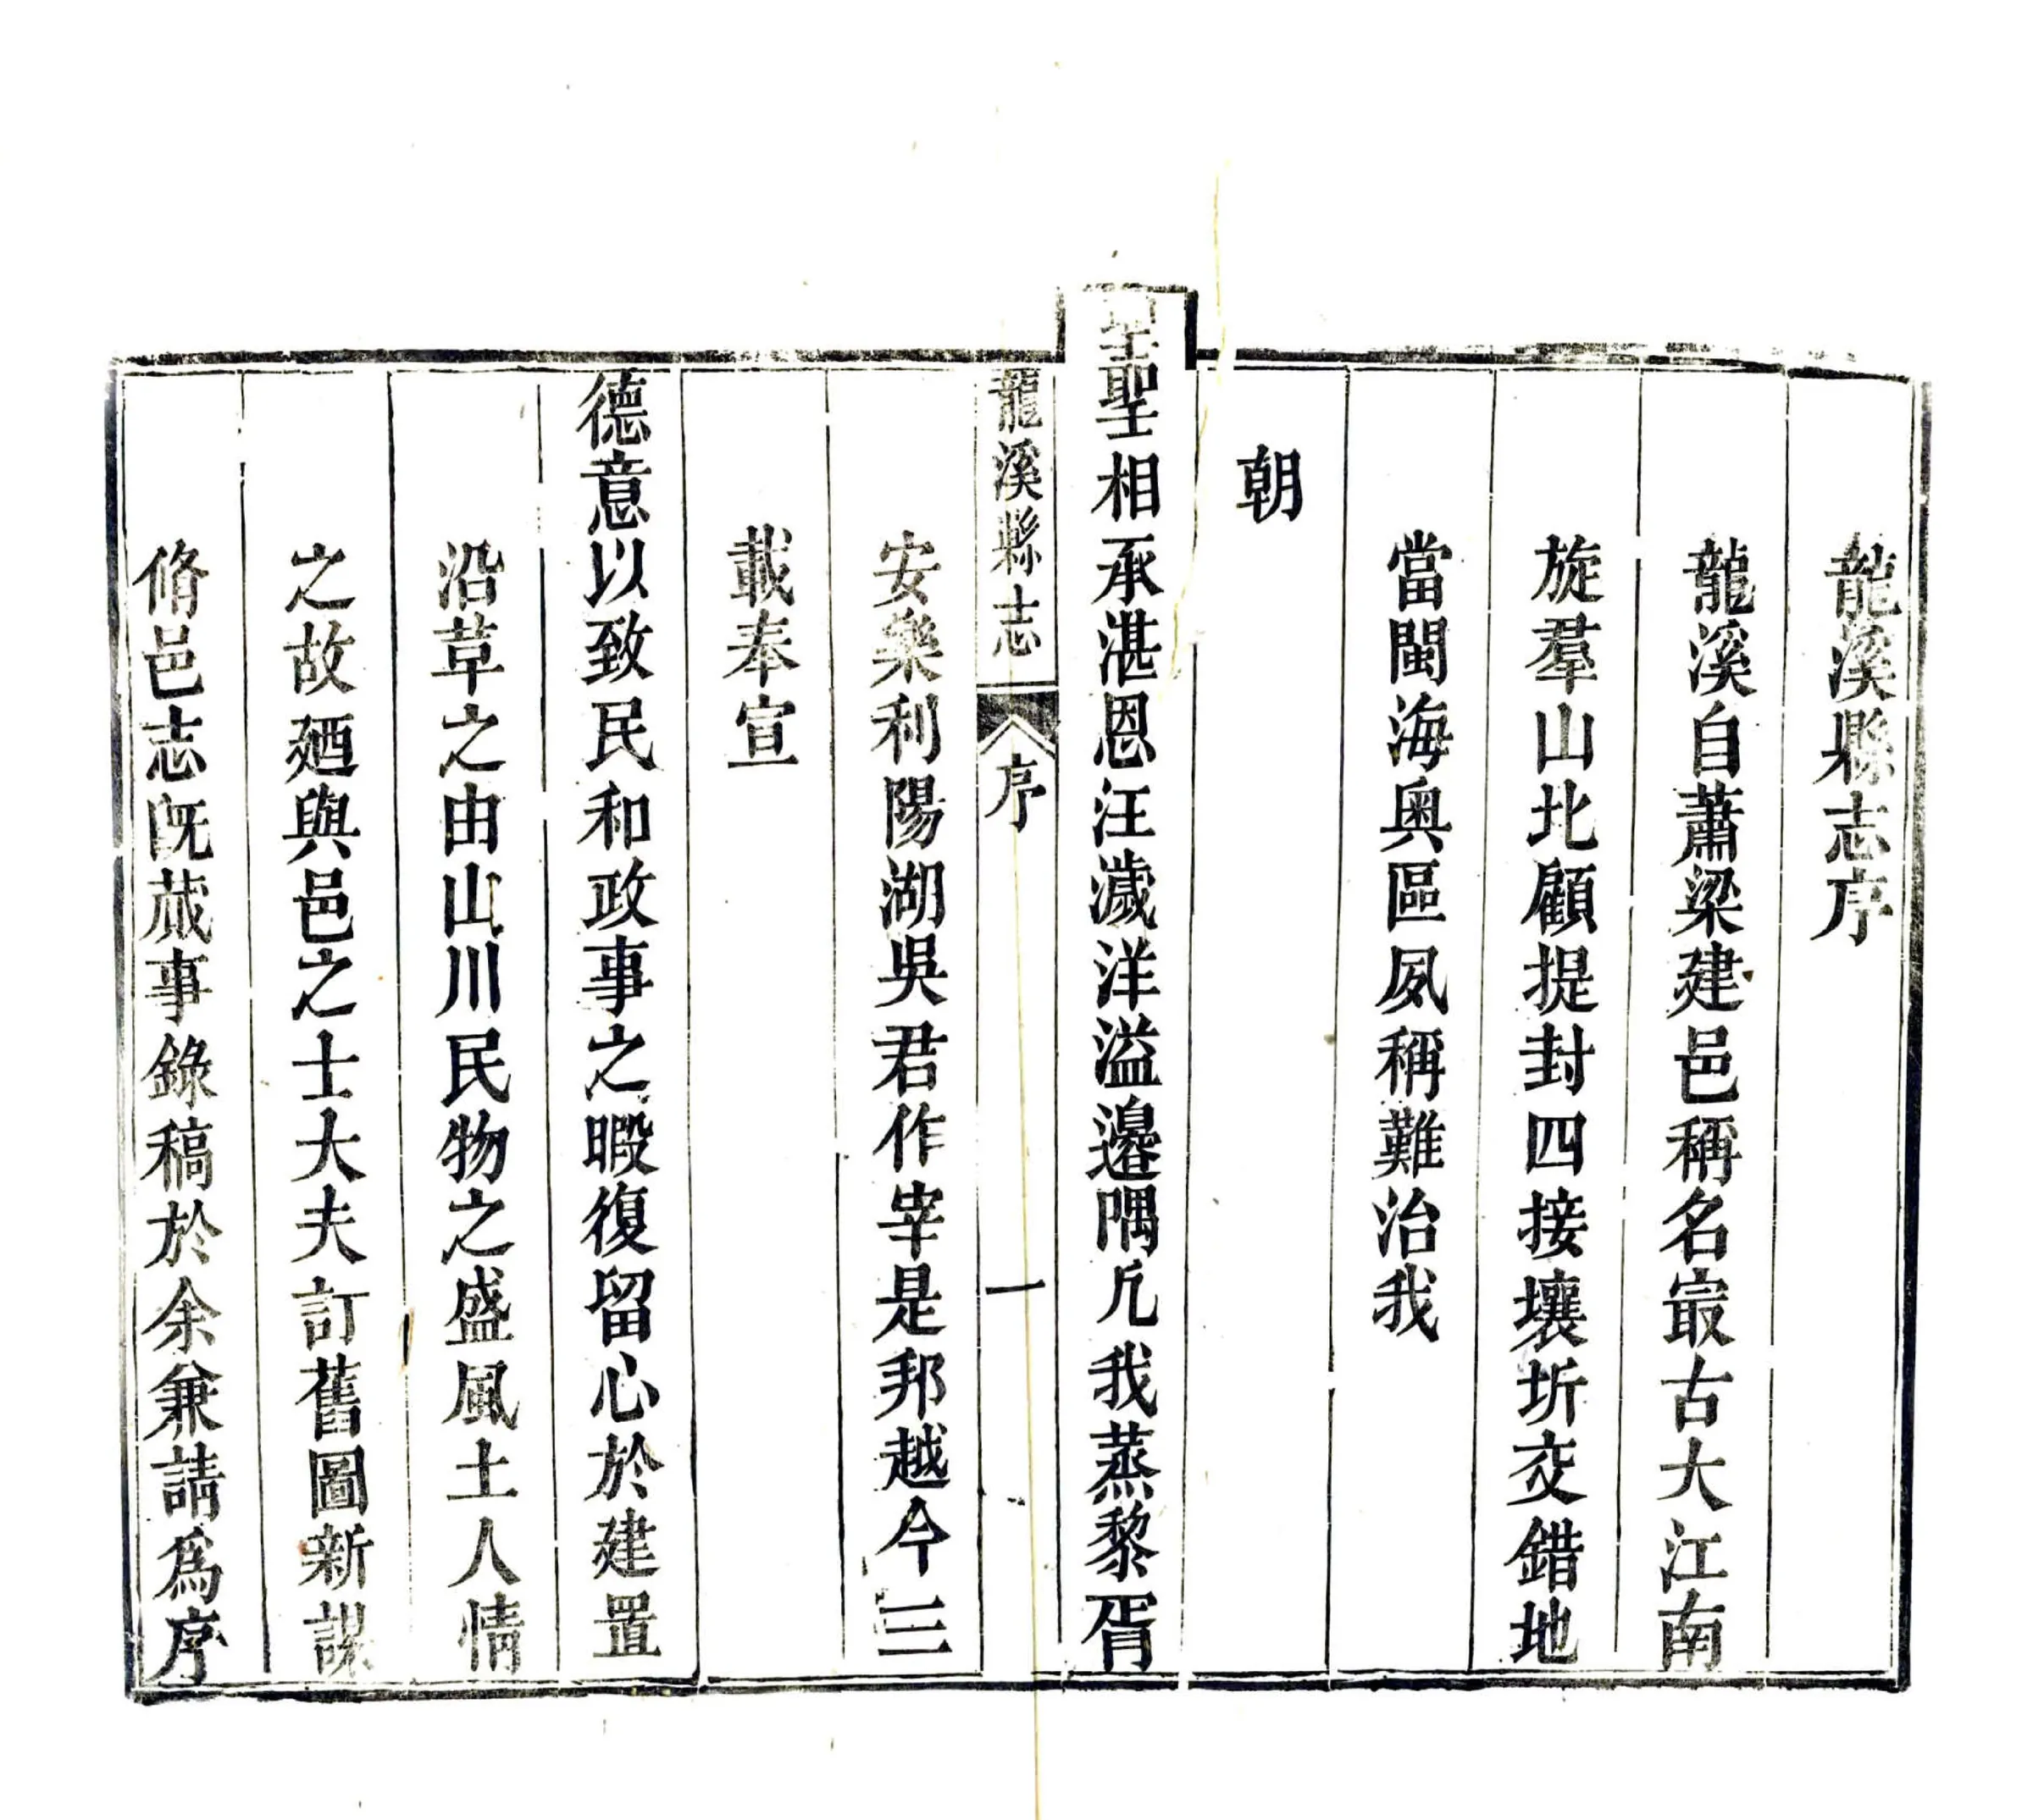 龍溪縣志序
龍溪自蕭梁建邑稱名㝡古大江南
旋羣山北顧提封四接壤圻交錯地
當閩海奧區夙稱難治我
朝
聖聖相承湛恩汪濊洋溢邉隅凢我蒸黎胥
龍溪縣志
序
一
安樂利陽湖吳君作宰是邦越今三
載奉宣
德意以致民和政事之暇復留心於建置
沿草之由山川民物之盛風土人情
之故廼與邑之士大夫訂舊圖新謀
脩邑志旣蕆事錄稿於余兼請爲序